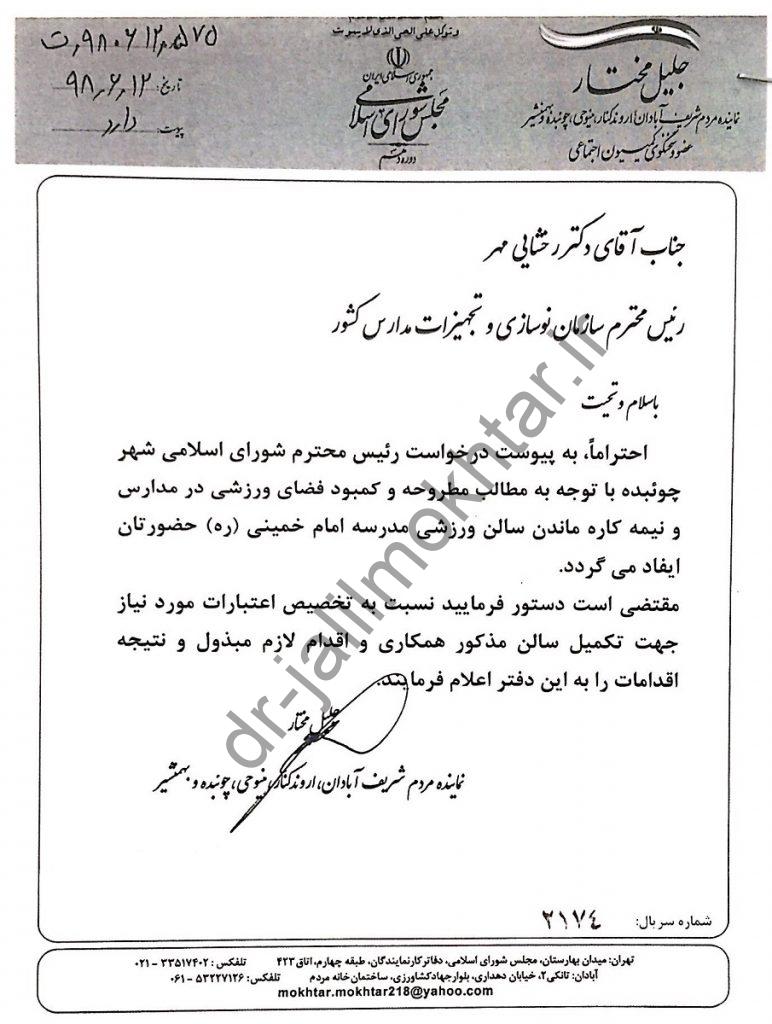 و توکل علی الحی الذی لایموت
جمهوری اسلامی ایران
مجلس شورای اسلامی
دوره دهم
جلیل مختار
نماینده مردم شریف آبادان، اروندکنار، منیوحی، چوئبده و بهمنشیر
عضو و سخنگوی کمیسیون اجتماعی
۹۸۰۶۱۲٫۵۷۵ ت
تاریخ: ۹۸٫۶٫۱۲
پیوست: دارد
جناب آقای دکتر رخشانی مهر
رئیس محترم سازمان نوسازی و تجهیزات مدارس کشور
باسلام و تحیت
احتراماً، به پیوست درخواست رئیس محترم شورای اسلامی شهر
چوئبده با توجه به مطالب مطروحه و کمبود فضای ورزشی در مدارس
و نیمه کاره ماندن سالن ورزشی مدرسه امام خمینی (ره) حضورتان
ایفاد می گردد.
مقتضی است دستور فرمایید نسبت به تخصیص اعتبارات مورد نیاز
جهت تکمیل سالن مذکور همکاری و اقدام لازم مبذول و نتیجه
اقدامات را به این دفتر اعلام فرمایند.
جلیل مختار
نماینده مردم شریف آبادان، اروندکنار، منیوحی، چوئبده و بهمنشیر
شماره سریال: ۲۱۷۴
تهران: میدان بهارستان، مجلس شورای اسلامی، دفاتر کار نمایندگان، طبقه چهارم، اتاق ۴۲۳ تلفکس: ۳۳۵۱۷۴۰۲-۰۲۱
آبادان: تانکی۲، خیابان دهداری، بلوار جهادکشاورزی، ساختمان خانه مردم تلفکس: ۵۳۲۲۷۱۲۶-۰۶۱
mokhtar.mokhtar218@yahoo.com
dr-jalilmokhtar.ir